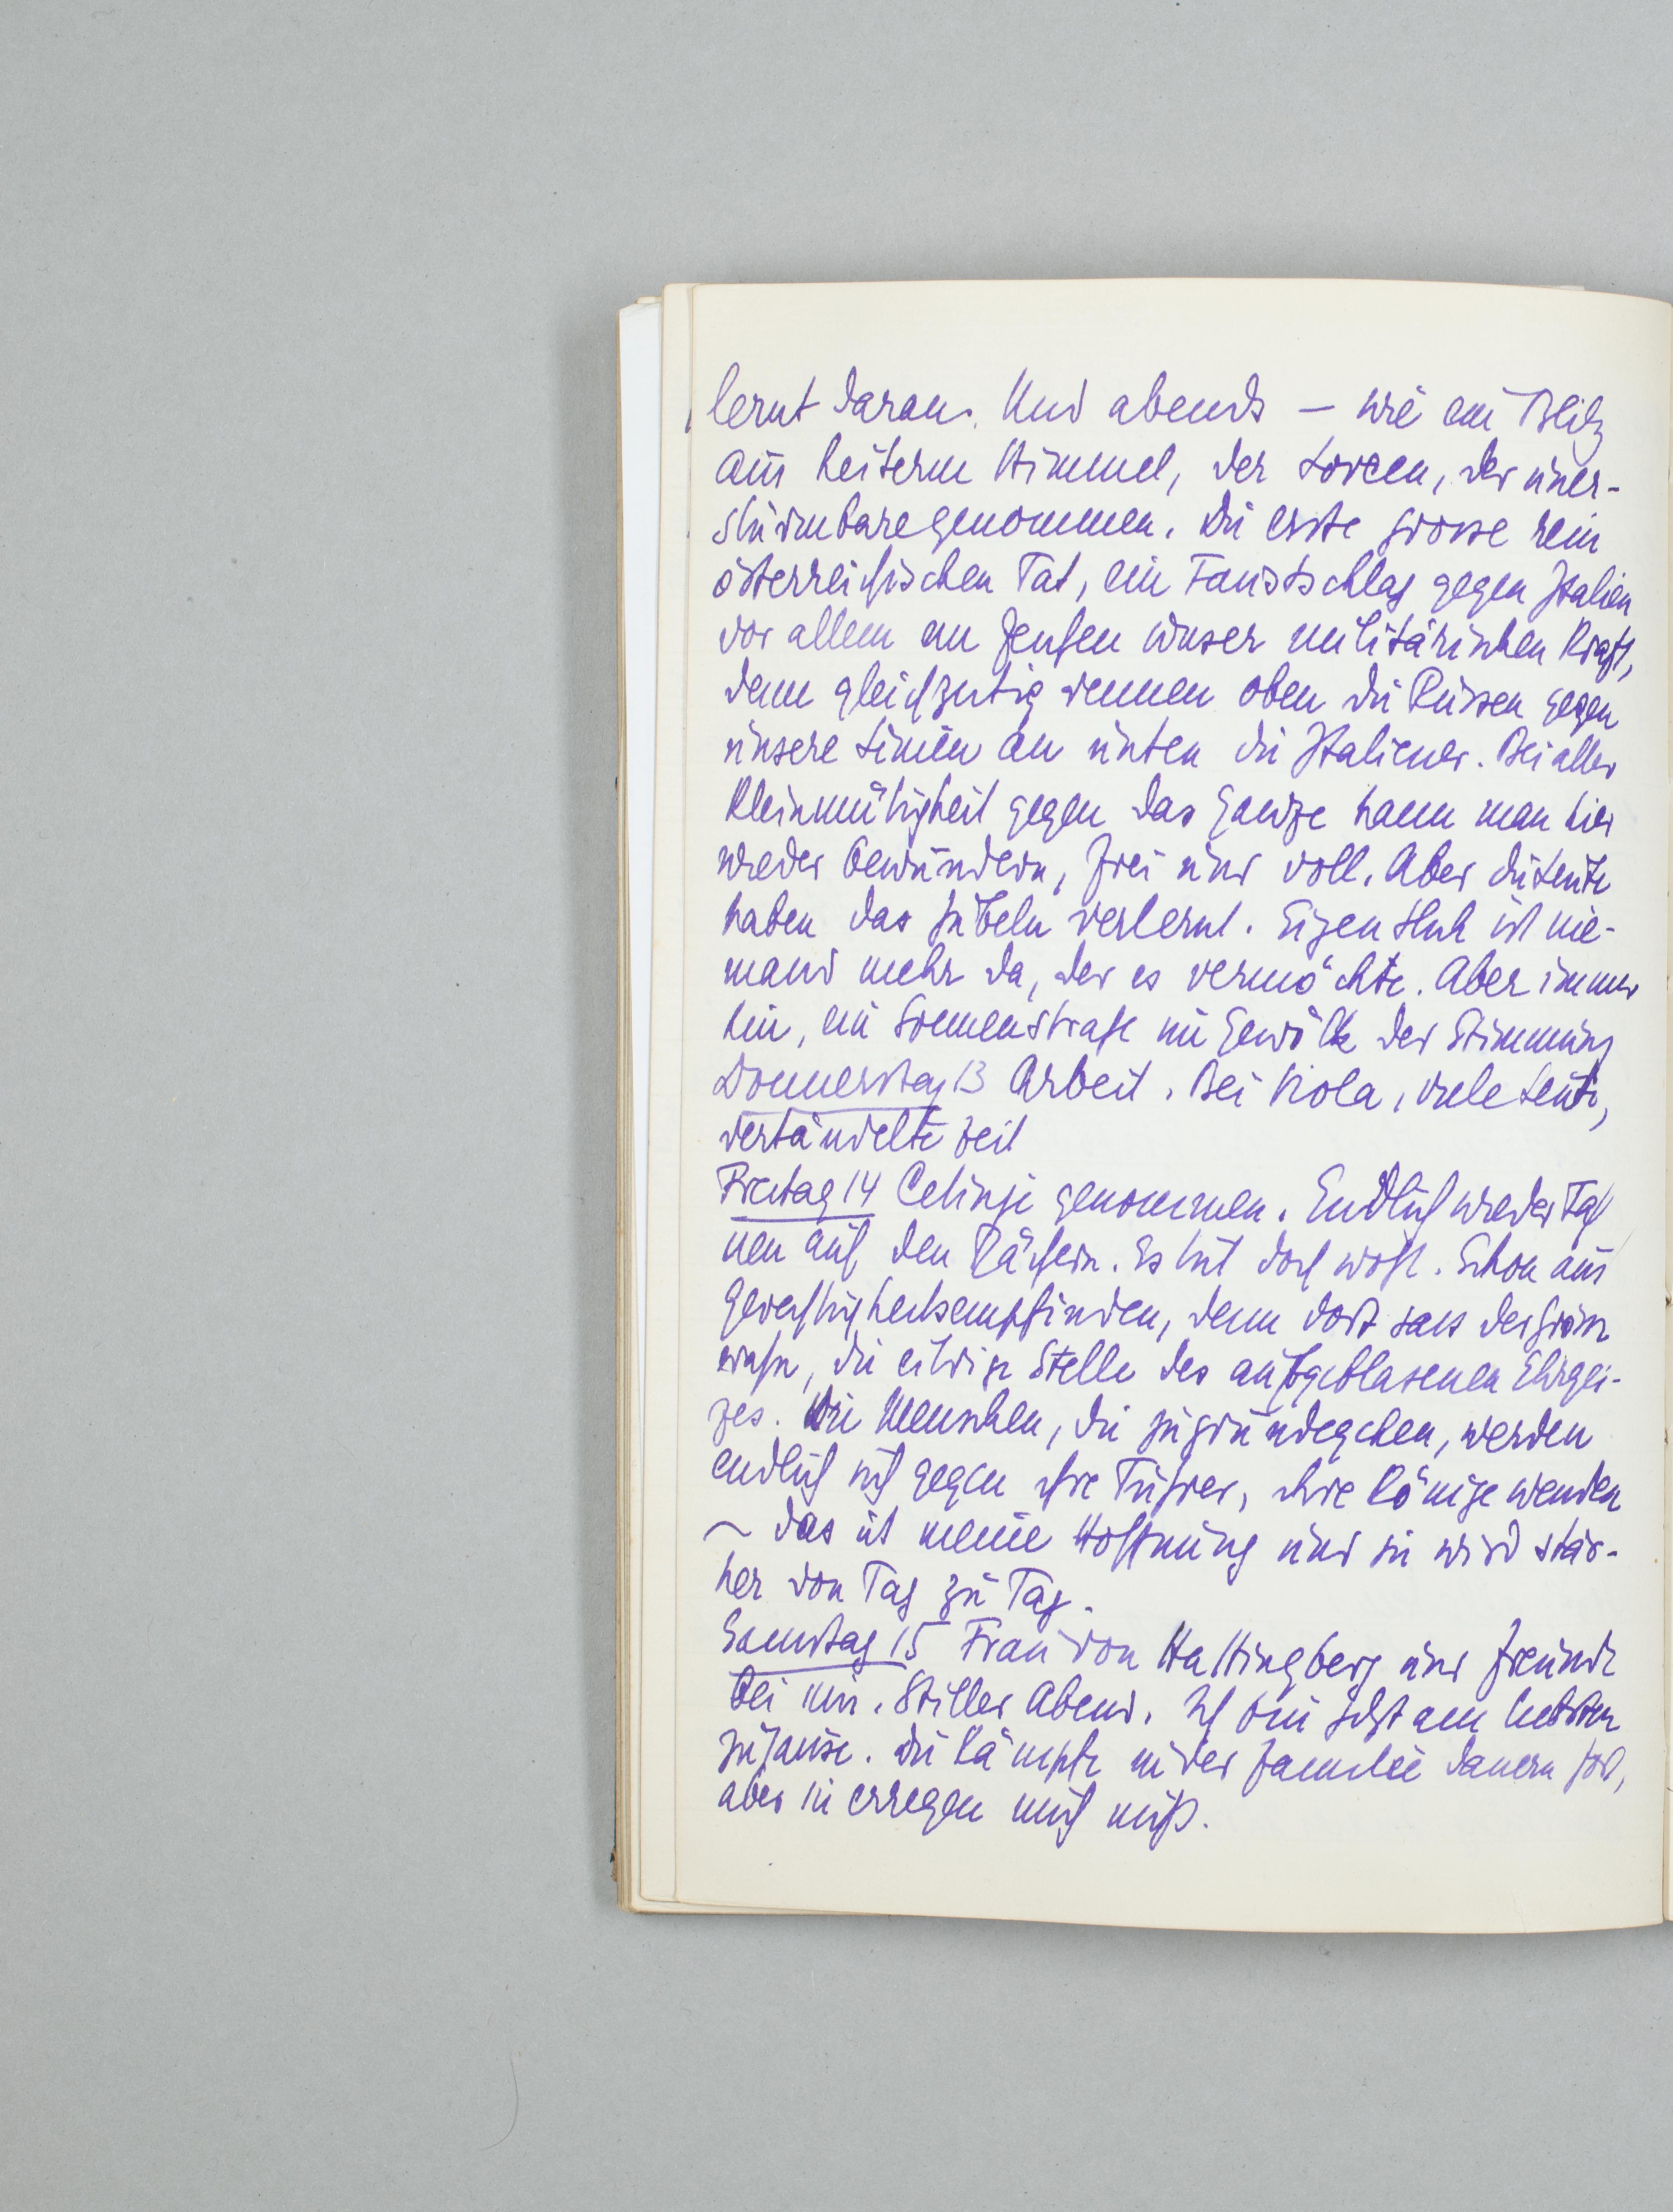 lernt daran. Und abends – wie ein Blitz
aus heiterm Himmel, der Lovcen, der uner-
stürmbare genommen. Die erste grosse rein
österreichischen Tat, ein Faustschlag gegen Italien
vor allem ein Zeichen unser militärischen Kraft,
denn gleichzeitig rennen oben die Russen gegen
unsere Linien an unten die Italiener. Bei aller
Kleinmütigkeit gegen das Ganze kann man hier
wieder bewundern, frei und voll. Aber die Leute
haben das Jubeln verlernt. Eigentlich ist nie-
mand mehr da, der es vermöchte. Aber immer
hin, ein Sonnenstrahl im Gewölk der Stimmung
Donnerstag 13 Arbeit. Bei Viola, viele Leute,
vertändelte Zeit
Freitag 14 Cetinje genommen. Endlich wieder Fah
nen auf den Dächern. Es tut doch wohl. Schon aus
Gerechtigkeitsempfinden, denn dort sass der
die eitrige Stelle des aufgeblasenen Ehrgei-
zes. Die Menschen, die zugrundegehen, werden
endlich sich gegen ihre Führer, ihre Könige wenden
– das ist meine Hoffnung und sie wird stär-
ker von Tag zu Tag.
Samstag 15 Frau von Hattingberg und Freunde
bei mir. Stiller Abend. Ich bin jetzt am liebsten
zuhause. Die Kämpfe in der Familie dauern fort,
aber sie erregen mich nicht.